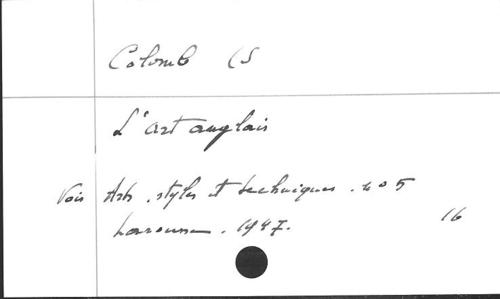 Colomb (S
L'art anglais
Voir Arts, styles et techniques. no 5
Larousse. 1947.
16